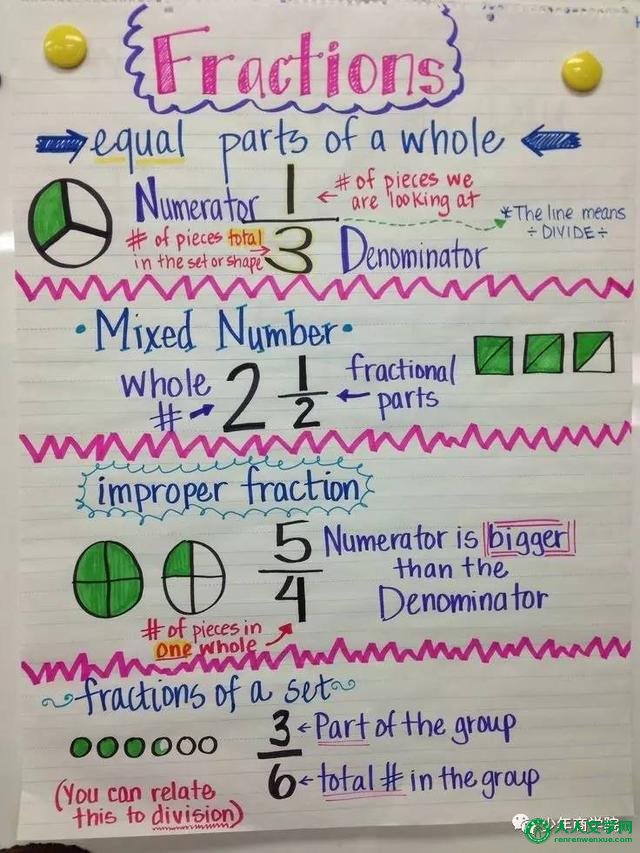 Fractions
equal parts of a whole
Numerator 1 # of pieces we
are looking at
*The line means
÷ DIVIDE ÷
# of pieces total
in the set or shape 3 Denominator
• Mixed Number •
Whole
# 2 1/2 fractional
parts
improper fraction
5/4 Numerator is bigger
than the
Denominator
# of pieces in
one whole
fractions of a set
3 Part of the group
6 total # in the group
(You can relate
this to division)
少年商学院
人人文学网
renrenwenxue.com